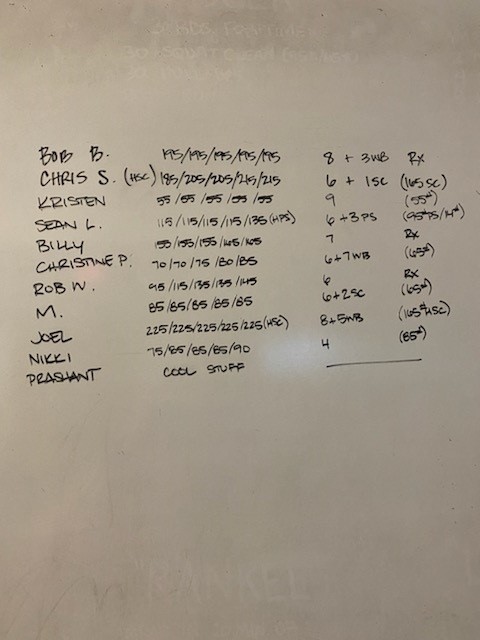 BOB B. 195/195/195/195/195 8 + 3WB Rx
CHRIS S. (HSC) 185/205/205/215/215 6 + 1SC (165 SC)
KRISTEN 55/55/55/55/55 9 (55#)
SEAN L. 115/115/115/115/135 (HPS) 6+3PS (95#PS/14#)
BILLY 155/155/155/165/165 7 Rx
CHRISTINE P. 70/70/75/80/85 6+7WB (65#)
ROB W. 95/115/135/135/145 6 Rx
M. 85/85/85/85/85 6+2SC (65#)
JOEL 225/225/225/225/225(HSC) 8+5WB (165#HSC)
NIKKI 75/85/85/85/90 4 (85#)
PRASHANT COOL STUFF